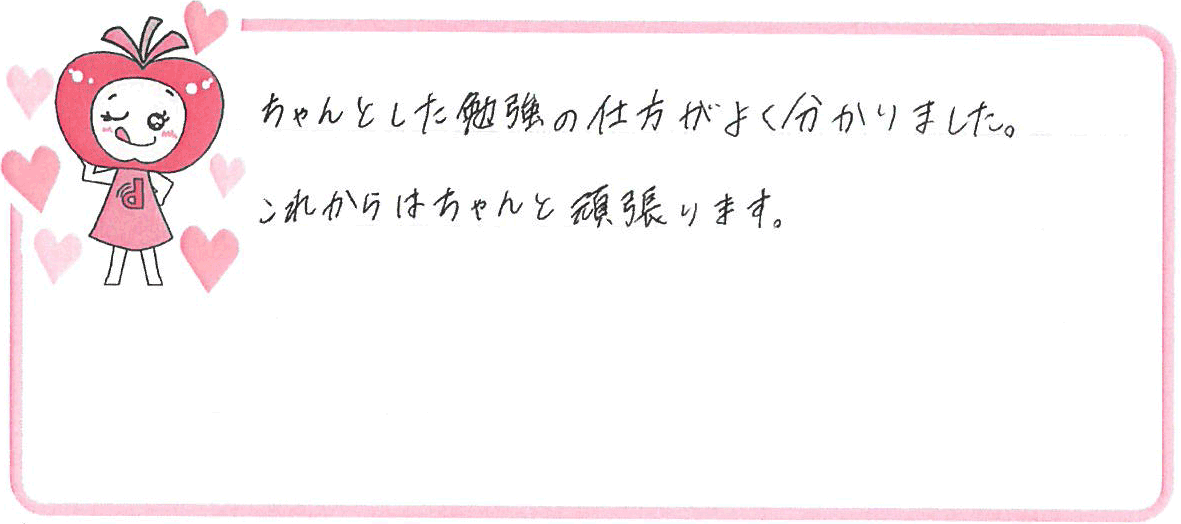 ちゃんとした勉強の仕方がよく分かりました。
これからはちゃんと頑張ります。
d